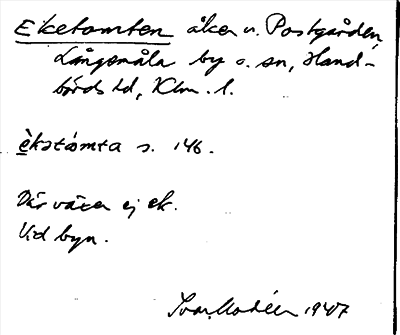 Eketomten åker u. Postgården,
Långemåla by o. sn, Hand-
börds hd, Klm. l.
èkstómta s. 146.
Där växer ej ek.
Vid byn.
Ivar Modéer 1947